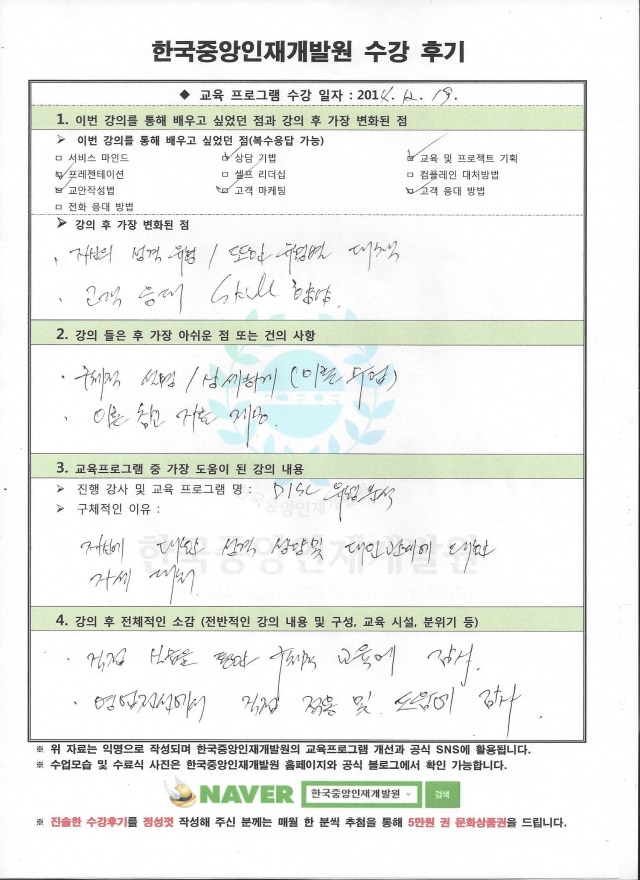 한국중앙인재개발원 수강 후기
◆ 교육 프로그램 수강 일자 : 2014. 12. 19.
1. 이번 강의를 통해 배우고 싶었던 점과 강의 후 가장 변화된 점
➢ 이번 강의를 통해 배우고 싶었던 점(복수응답 가능)
□ 서비스 마인드 □ 상담 기법 □ 교육 및 프로젝트 기획
□ 프레젠테이션 □ 셀프 리더십 □ 컴플레인 대처방법
□ 교안작성법 □ 고객 마케팅 □ 고객 응대 방법
□ 전화 응대 방법
➢ 강의 후 가장 변화된 점
· 자신의 성격 유형 / 또한 유형별 대책
· 고객 응대 Skill 향상.
2. 강의 들은 후 가장 아쉬운 점 또는 건의 사항
· 구체적 설명 / 상세하게 (이론 수업)
· 이론 참고 자료 제공.
3. 교육프로그램 중 가장 도움이 된 강의 내용
➢ 진행 강사 및 교육 프로그램 명 : DISC 유형분석
➢ 구체적인 이유 :
자신에 대한 성격 상담 및 대인관계에 대한
자세 대처.
4. 강의 후 전체적인 소감 (전반적인 강의 내용 및 구성, 교육 시설, 분위기 등)
· 직접 실습을 통한 구체적 교육에 감사.
· 영업전선에서 직접 적용 및 도움에 감사
※ 위 자료는 익명으로 작성되며 한국중앙인재개발원의 교육프로그램 개선과 공식 SNS에 활용됩니다.
※ 수업모습 및 수료식 사진은 한국중앙인재개발원 홈페이지와 공식 블로그에서 확인 가능합니다.
NAVER 한국중앙인재개발원 검색
※ 진솔한 수강후기를 정성껏 작성해 주신 분께는 매월 한 분씩 추첨을 통해 5만원 권 문화상품권을 드립니다.
한국중앙인재개발원